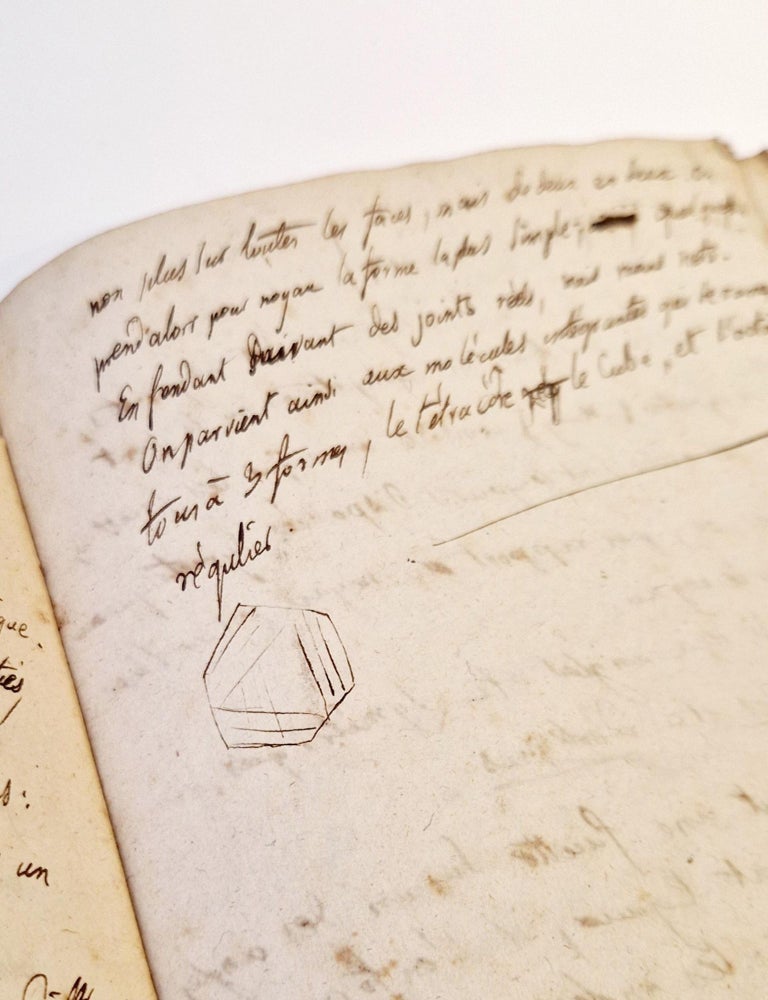 non plus sur toutes les faces, mais de deux en deux
prend alors pour noyau la forme la plus simple;
En fendant suivant des joints réels, mais moins nets.
On parvient ainsi aux molécules intégrantes qui
tous à 3 formes, le tétraèdre le Cube, et l'octa
régulier.
que.
s:
un